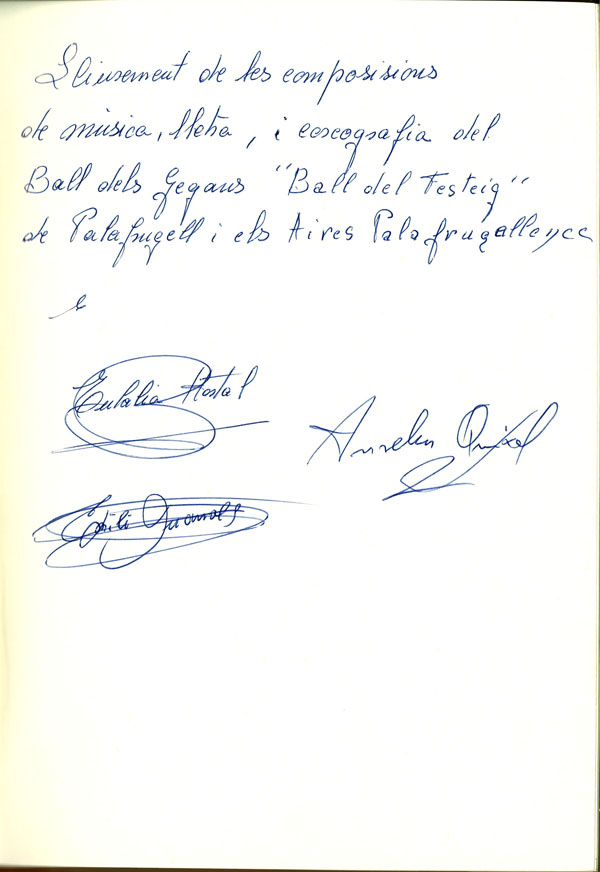 Lliurement de les composisions
de música, lletra, i coreografia del
Ball dels Gegans "Ball del Festeig"
de Palafrugell i els Aires Palafrugallencs
Eulalia Hostal